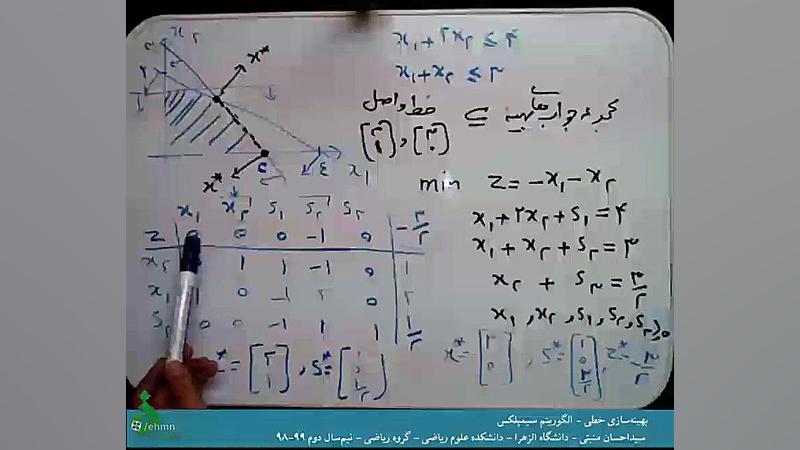 x₁ + ۲x₂ ≤ ۴
x₁ + x₂ ≤ ۳
مجموعه جواب‌های بهینه = خط واصل
[۲ ۱] , [۳ ۰]
min z = -x₁ - x₂
x₁ + ۲x₂ + s₁ = ۴
x₁ + x₂ + s₂ = ۳
x₂ + s₃ = ۳/۲
x₁, x₂, s₁, s₂, s₃ ≥ 0
x₂
x**
x*
x₁
x₁ x₂ s₁ s₂ s₃
z 0 0 -1 0 -۳
x₂ 1 1 -1 0 1
x₁ 0 -1 ۲ 0 ۲
s₃ 0 0 -1 1 1 1/۲
* = [۲ 1] , s* =
x* = [۳ 0] , s* = [1 0 ۳/۲] , z* = -۳
بهینه‌سازی خطی - الگوریتم سیمپلکس
سیداحسان منبتی - دانشگاه الزهرا - دانشکده علوم ریاضی - گروه ریاضی - نیم‌سال دوم ۹۹-۹۸
/ehmn